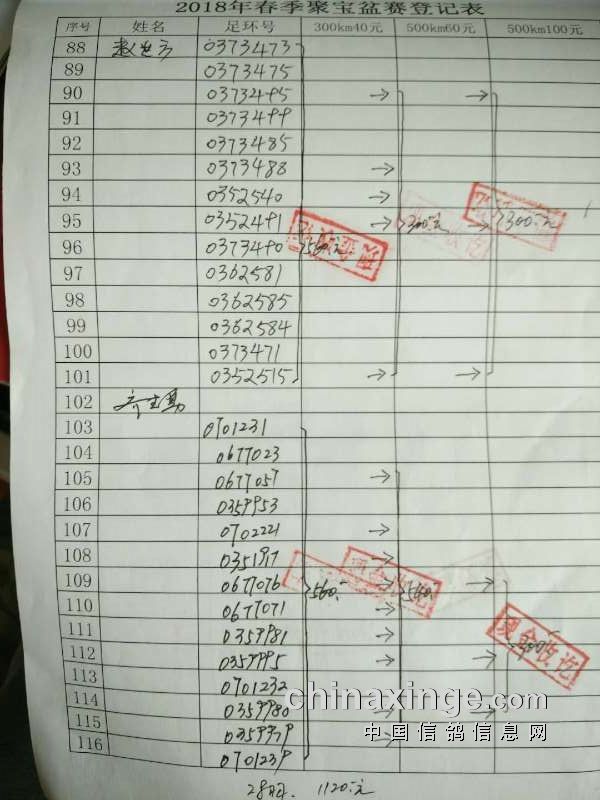 2018年春季聚宝盆赛登记表
序号 姓名 足环号 300km40元 500km60元 500km100元
88 0373473
89 0373475
90 0373495 → → 
91 0373499
92 0373485
93 0373488 →
94 0352540 →
95 0352491 → →
96 0373490
97 0362581
98 0362585
99 0362584
100 0373471
101 0352515 → →
102
103 0701231
104 0677023
105 0677057 →
106 0359953
107 0702221 →
108 →
109 0677076 560 → →
110 0677071 →
111 0359981 →
112 0359995 → →
113 0701232
114 0359980 → →
115 0359979
116 0701239
现金收讫
chinaxinge.com
中国信鸽信息网
28羽. 1120元